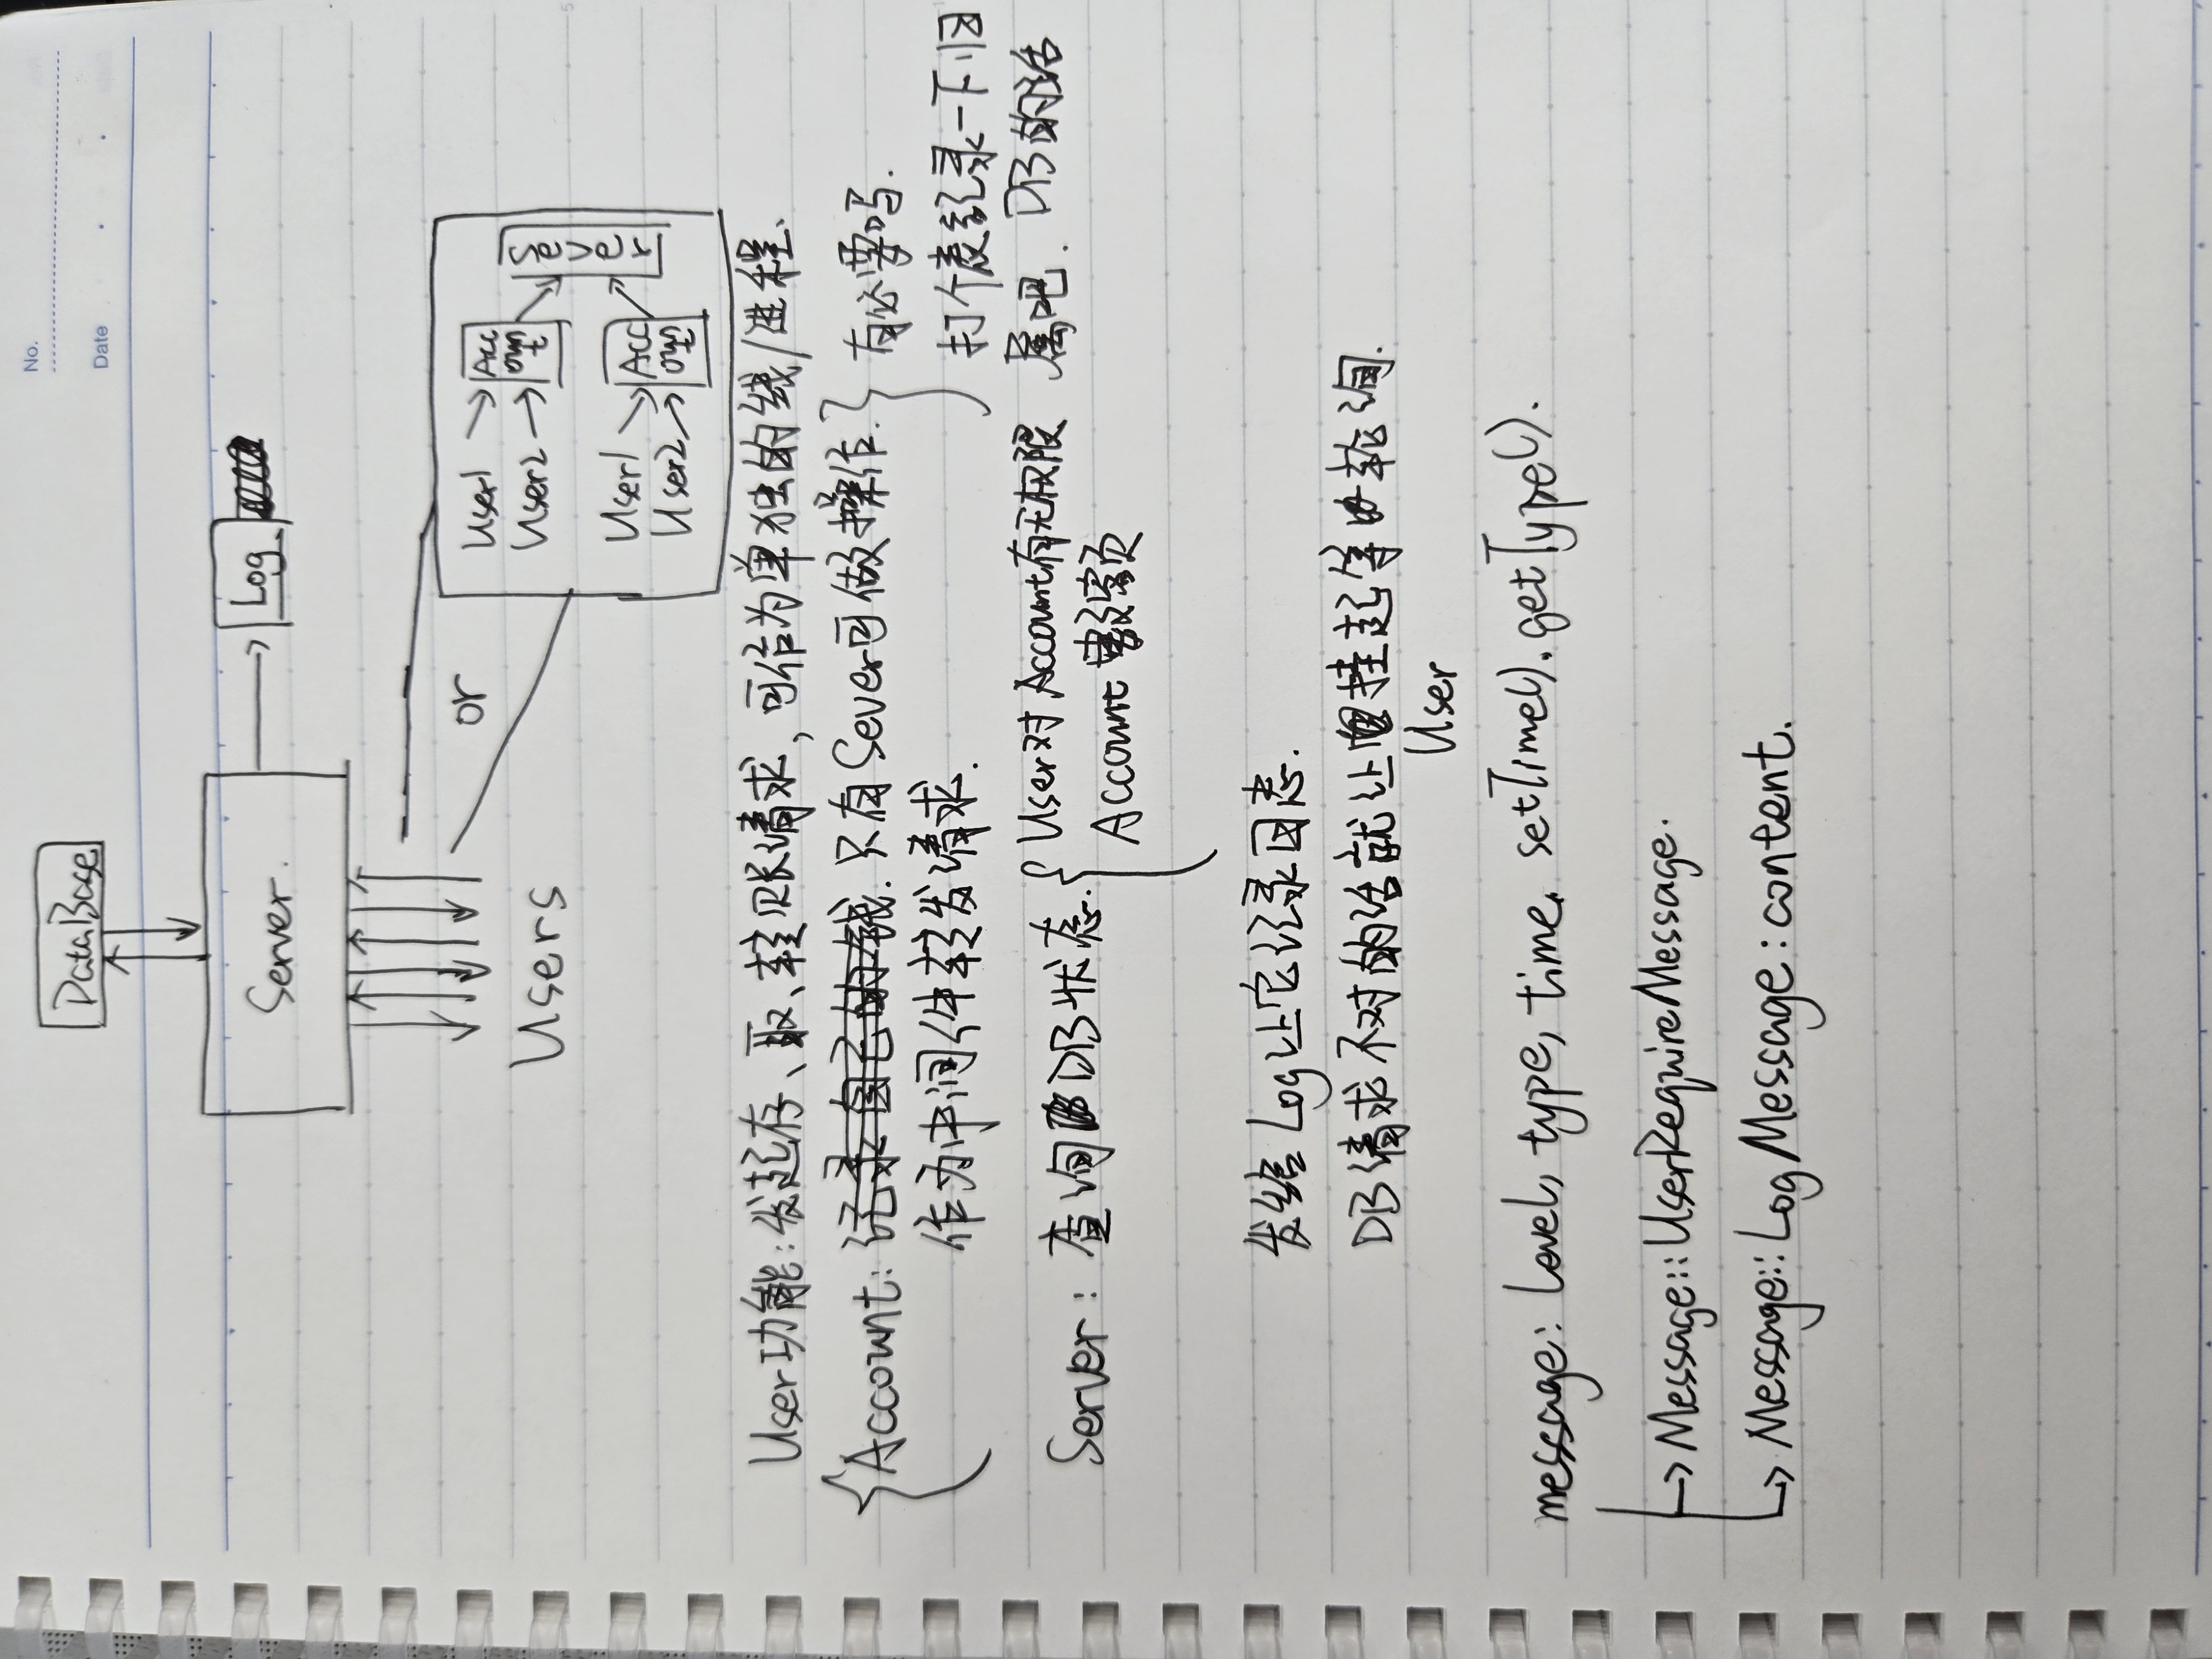 No.
Date
DataBase
Server.
Log
or
Users
User1
User2
Acc
oun
t
User1
User2
Acc
oun
t
Sever
User功能:发起存、取、转账请求,可作为单独的线/进程.
Account: 记录自己的钱. 只有Sever可做操作.
作为中间件转发请求.
有必要吗.
打个表记录一下归
属吧. DB的话
Server: 查询DB状态.
User对Account有无权限
Account数额
发给Log让它记录日志.
DB请求不对的话就让挂起等轮询.
User
message: level, type, time, setTime(). getType().
Message::UserRequireMessage.
Message::LogMessage: content.